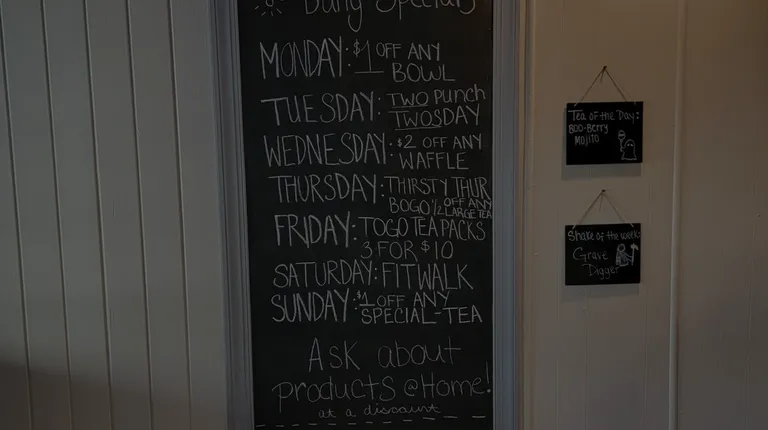 Daily Specials
MONDAY: $1 OFF ANY
BOWL
TUESDAY: TWO PUNCH
TWOSDAY
WEDNESDAY: $2 OFF ANY
WAFFLE
THURSDAY: THIRSTY THUR
BOGO 1/2 OFF ANY
LARGE TEA
FRIDAY: TOGO TEA PACKS
3 FOR $10
SATURDAY: FITWALK
SUNDAY: $1 OFF ANY
SPECIAL-TEA
Ask about
products @Home!
at a discount
Tea of the Day:
BOO-Berry
MOJITO
Shake of the week:
Grave
Digger